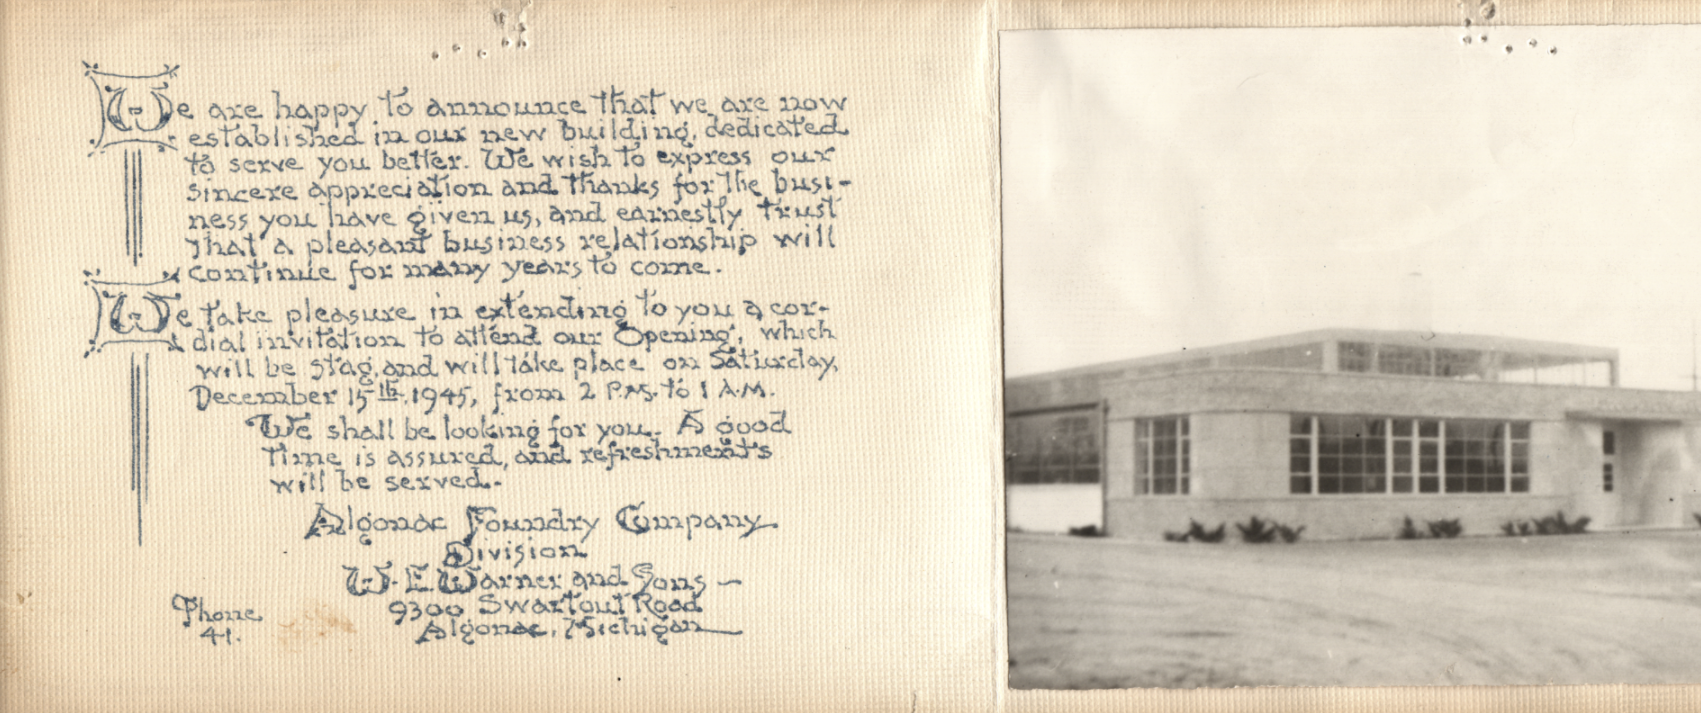 We are happy to announce that we are now
established in our new building, dedicated
to serve you better. We wish to express our
sincere appreciation and thanks for the busi-
ness you have given us, and earnestly trust
that a pleasant business relationship will
continue for many years to come.
We take pleasure in extending to you a cor-
dial invitation to attend our Opening, which
will be stag, and will take place on Saturday,
December 15th, 1945, from 2 P.M. to 1 A.M.
We shall be looking for you. A good
time is assured, and refreshments
will be served.
Algonac Foundry Company
Division
W. E. Warner and Sons —
9300 Swartout Road
Algonac, Michigan
Phone
41.